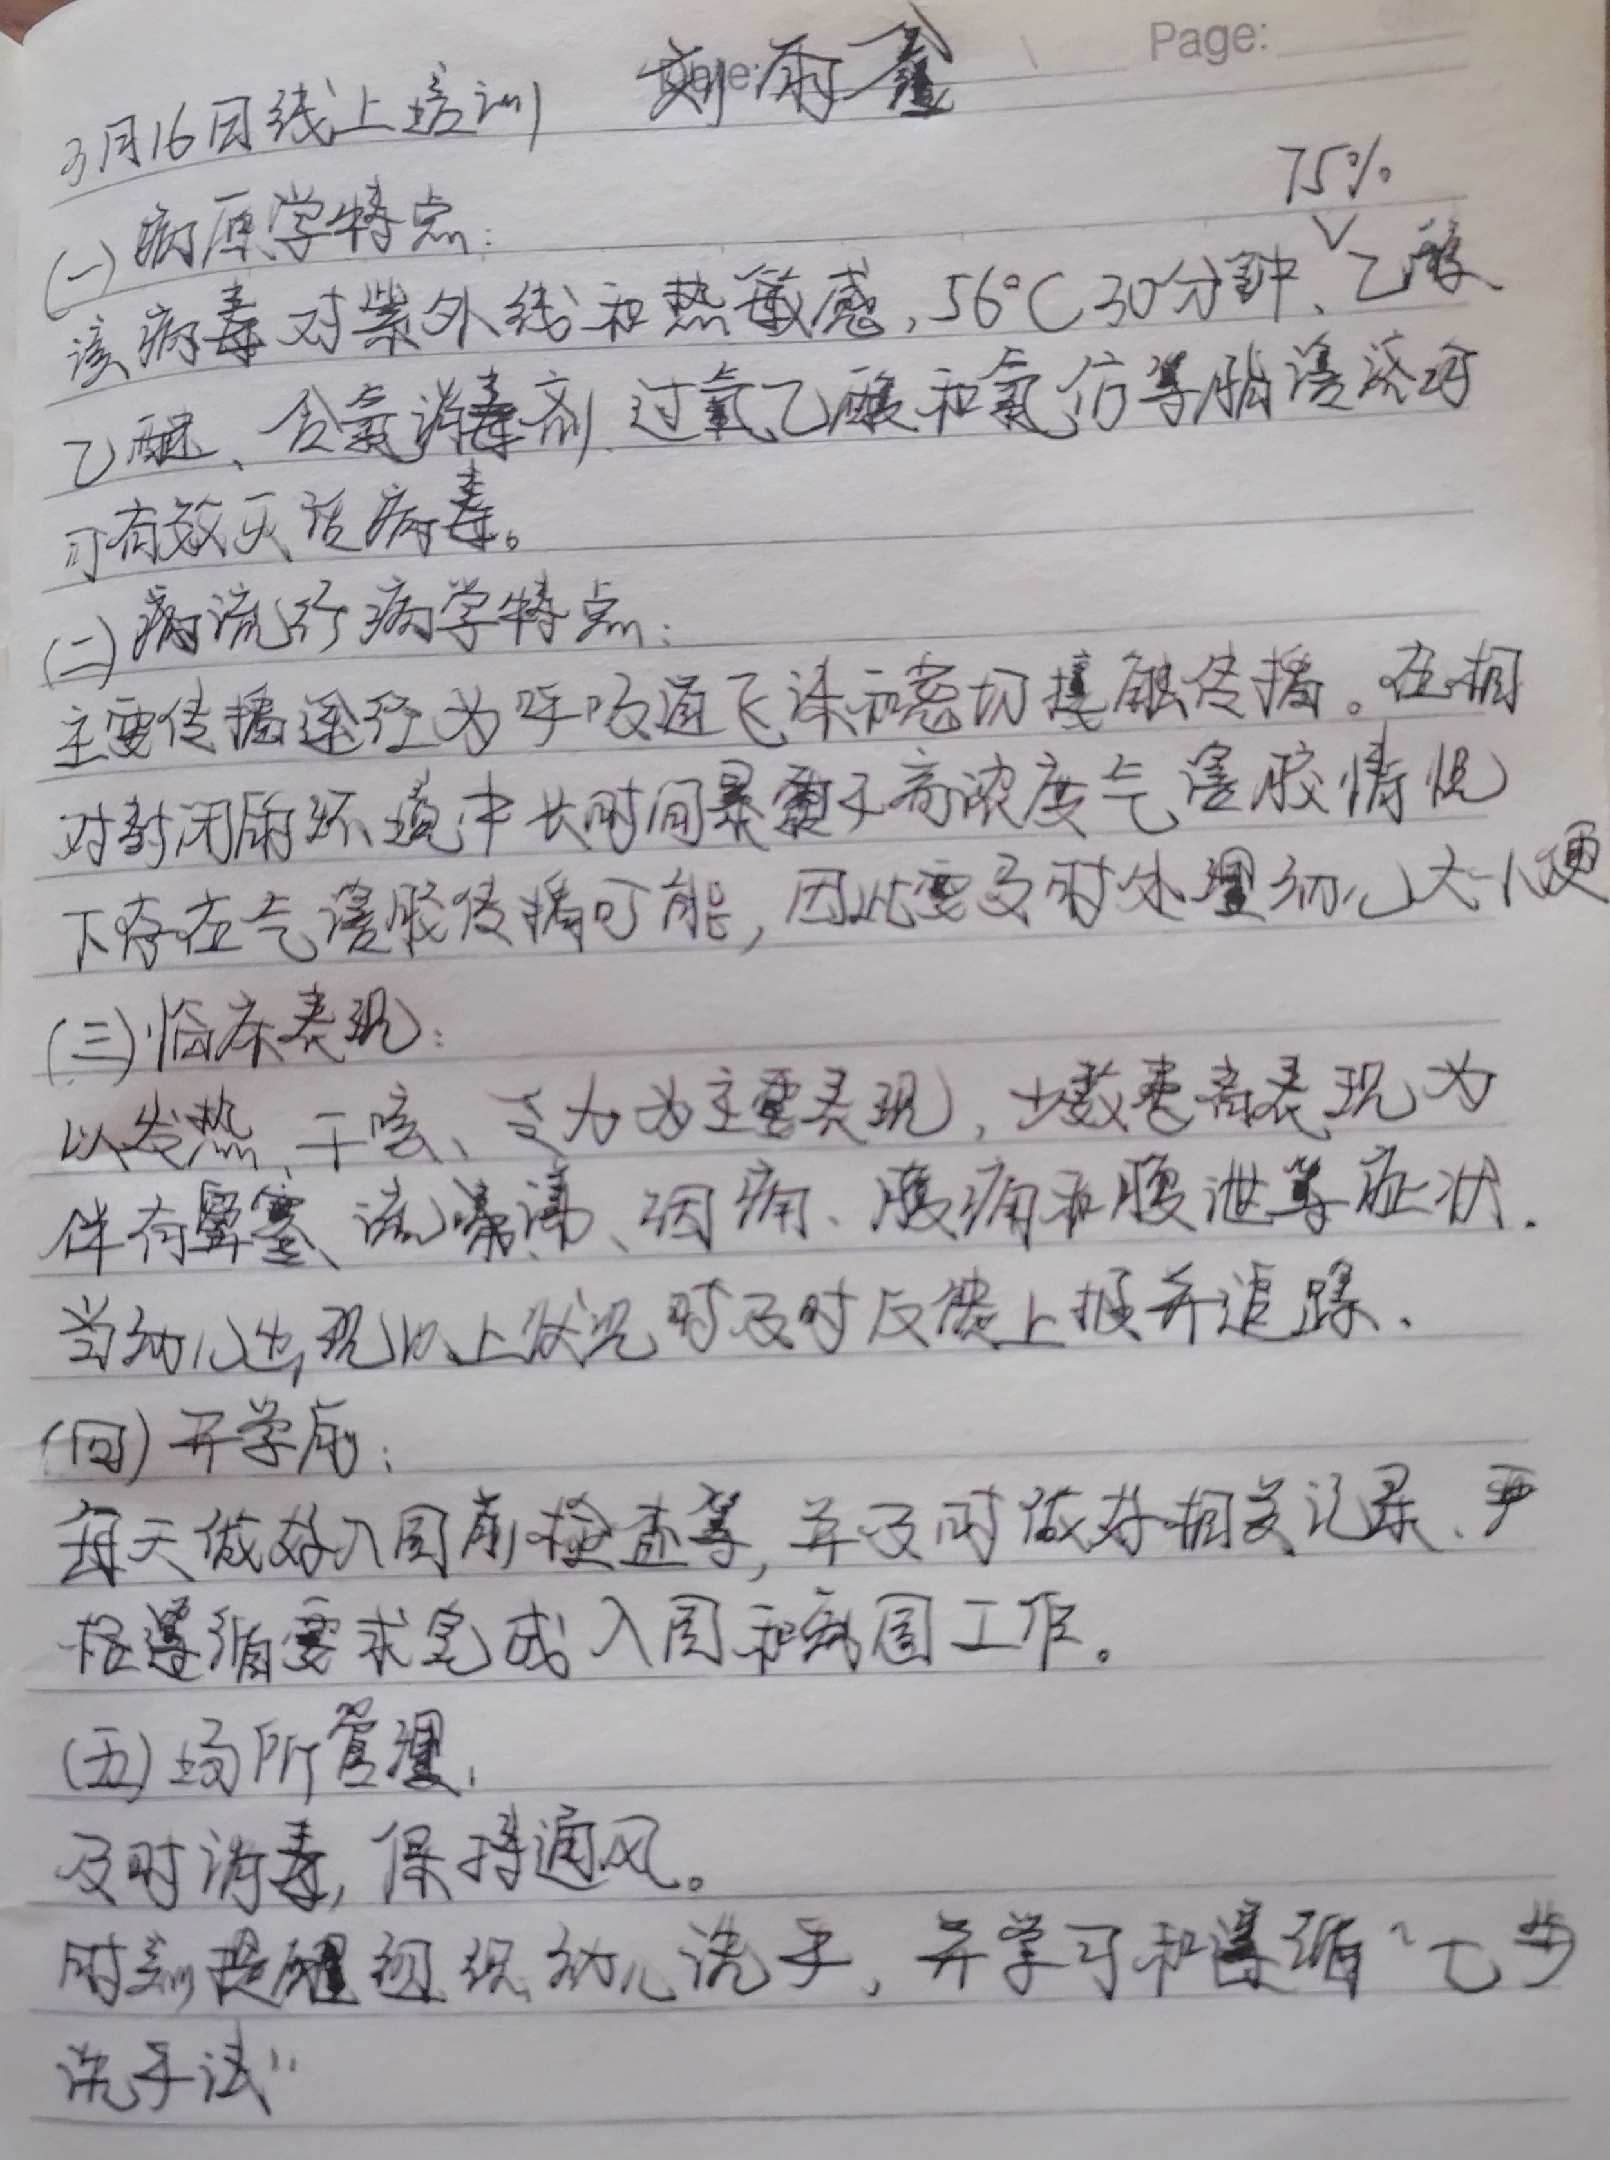 Page:
3月16日线上培训 刘雨鑫
75%
(一)病原学特点:
该病毒对紫外线和热敏感,56°C30分钟、乙醇
乙醚、含氯消毒剂、过氧乙酸和氯仿等脂溶液均
可有效灭活病毒。
(二)病流行病学特点:
主要传播途径为呼吸道飞沫和密切接触传播。在相
对封闭的环境中长时间暴露于高浓度气溶胶情况
下存在气溶胶传播可能,因此要及时处理幼儿大小便
(三)临床表现:
以发热、干咳、乏力为主要表现,少数患者表现为
伴有鼻塞、流鼻涕、咽痛、腹痛和腹泄等症状.
当幼儿出现以上状况时及时反馈上报并追踪.
(四)开学前:
每天做好入园前检查等,并及时做好相关记录、严
格遵循要求完成入园和离园工作。
(五)场所管理:
及时消毒,保持通风。
时刻提醒组织幼儿洗手,并学习和遵循“七步
洗手法”